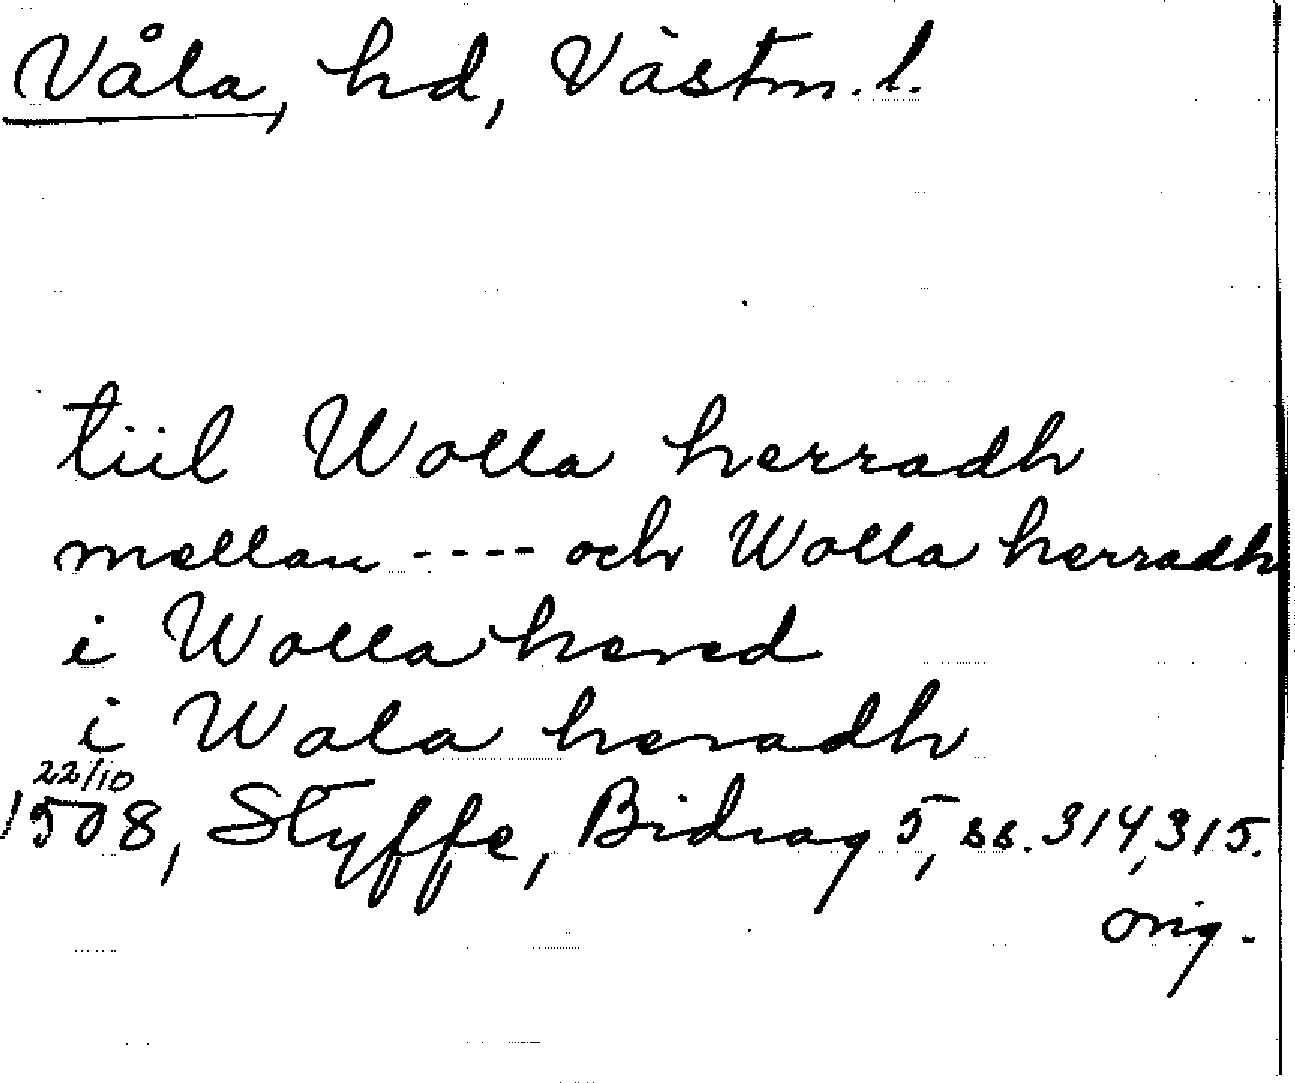 Våla, hd, Västm. l.
tiil Wolla herradh
mellan ---- och Wolla herradh
i Wolla hered
i Wala heradh
22/10
1508, Styffe, Bidrag 5, ss. 314, 315.
orig.